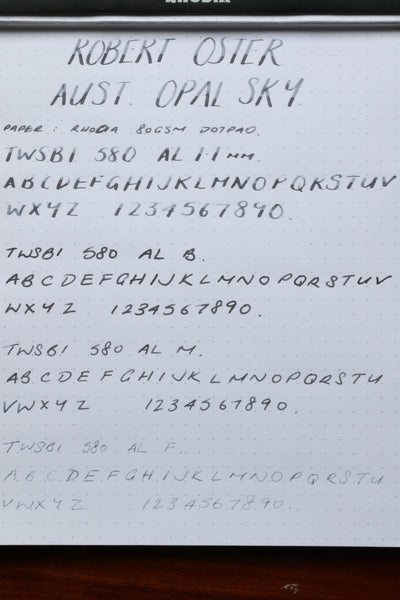 RHODIA
ROBERT OSTER
AUST. OPAL SKY.
PAPER: RHODIA 80GSM DOTPAD.
TWSBI 580 AL 1.1 MM.
ABCDEFGHIJKLMNOPQRSTUV
WXYZ 1234567890.
TWSBI 580 AL B.
ABCDEFGHIJKLMNOPQRSTUV
WXYZ 1234567890.
TWSBI 580 AL M.
ABCDEFGHIJKLMNOPQRSTU
VWXYZ 1234567890.
TWSBI 580 AL F.
ABCDEFGHIJKLMNOPQRSTU
VWXYZ 1234567890.